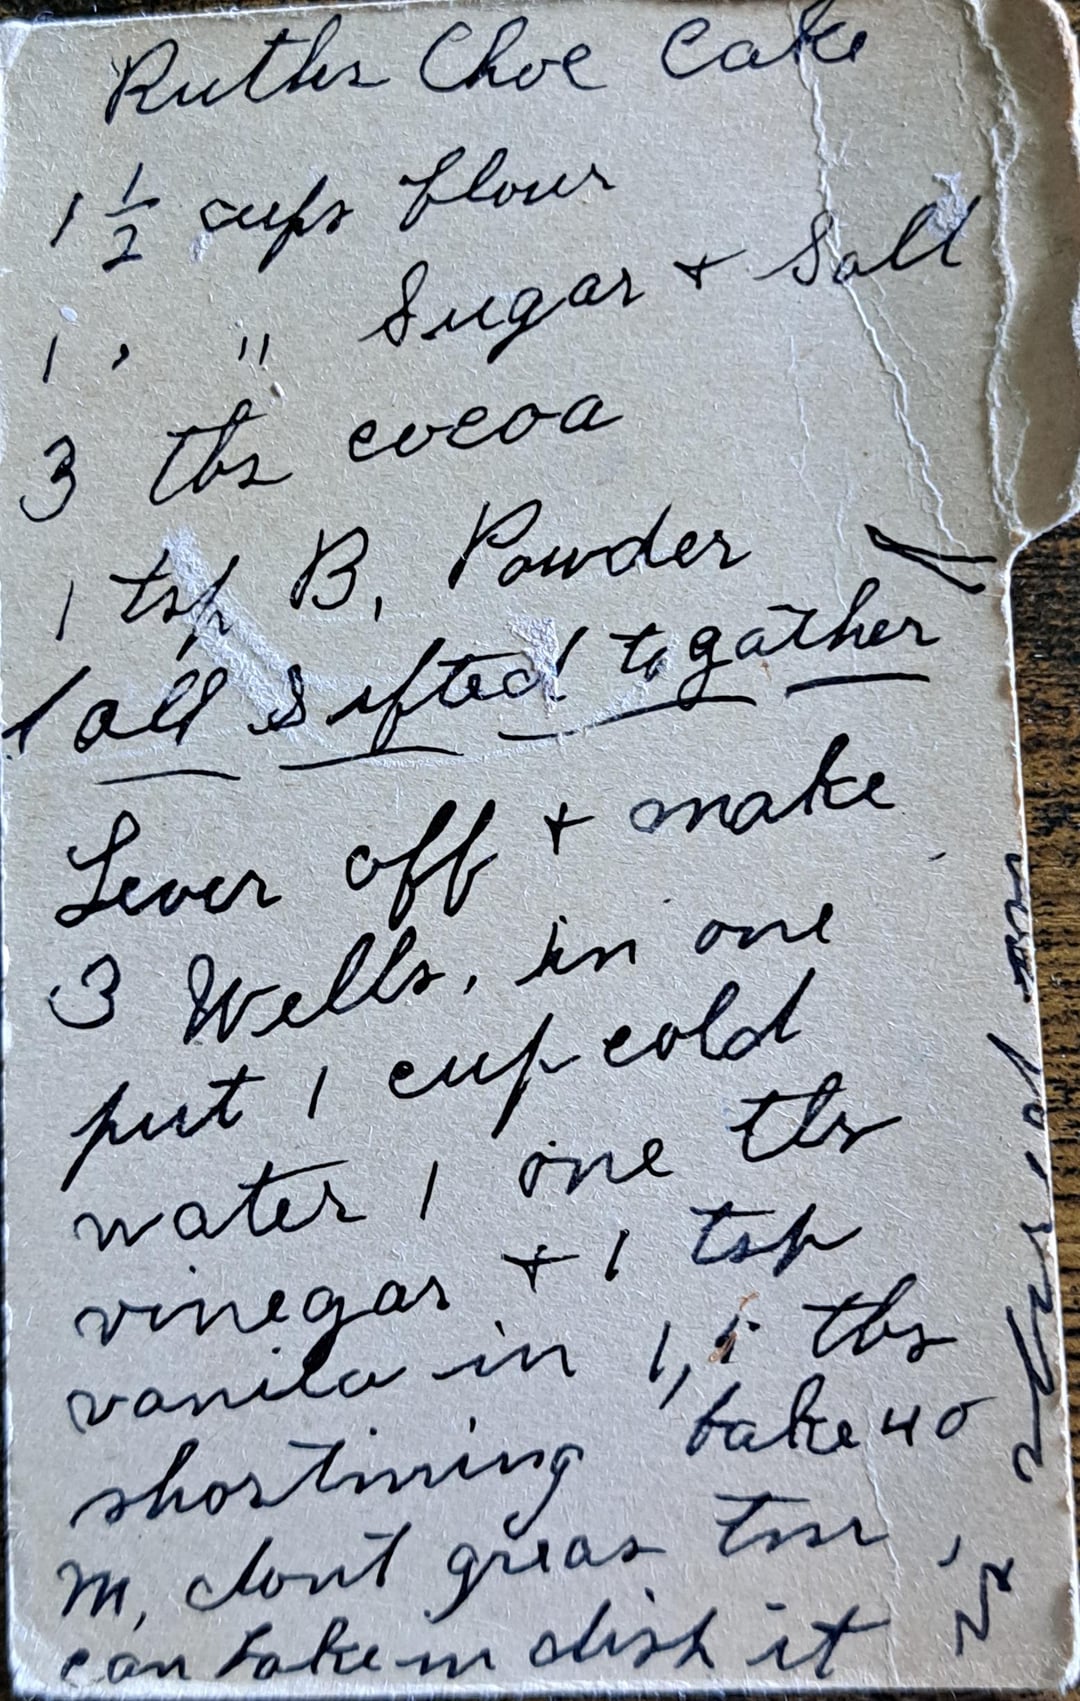 Ruths Choc Cake
1 1/2 cups flour
1 , " Sugar + Salt
3 tbs cocoa
1 tsp B, Powder
all sifted togather
Lever off + make
3 Wells, in one
put 1 cup cold
water 1 one tbs
vinegar + 1 tsp
vanila in 1, 5 tbs
shortining bake 40
M, dont greas
can bake in dish it